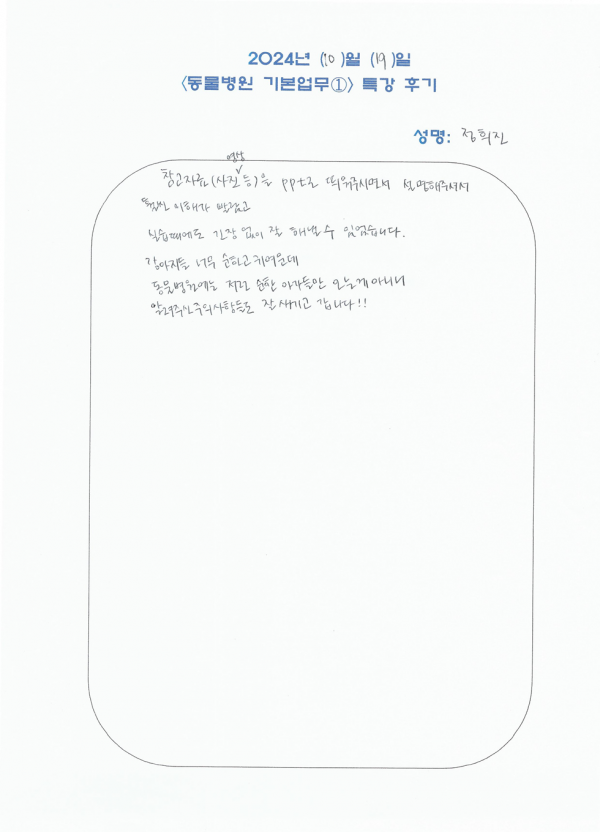 2024년 (10)월 (19)일
<동물병원 기본업무①> 특강 후기
성명: 정희진
영상
참고자료(사진 등)을 ppt로 띄워주시면서 설명해주셔서
훨씬 이해가 빨랐고
실습때에도 긴장 없이 잘 해낼 수 있었습니다.
강아지들 너무 순하고 귀여운데
동물병원에는 저런 순한 아가들만 오는게 아니니
알려주신 주의사항들도 잘 새기고 갑니다!!